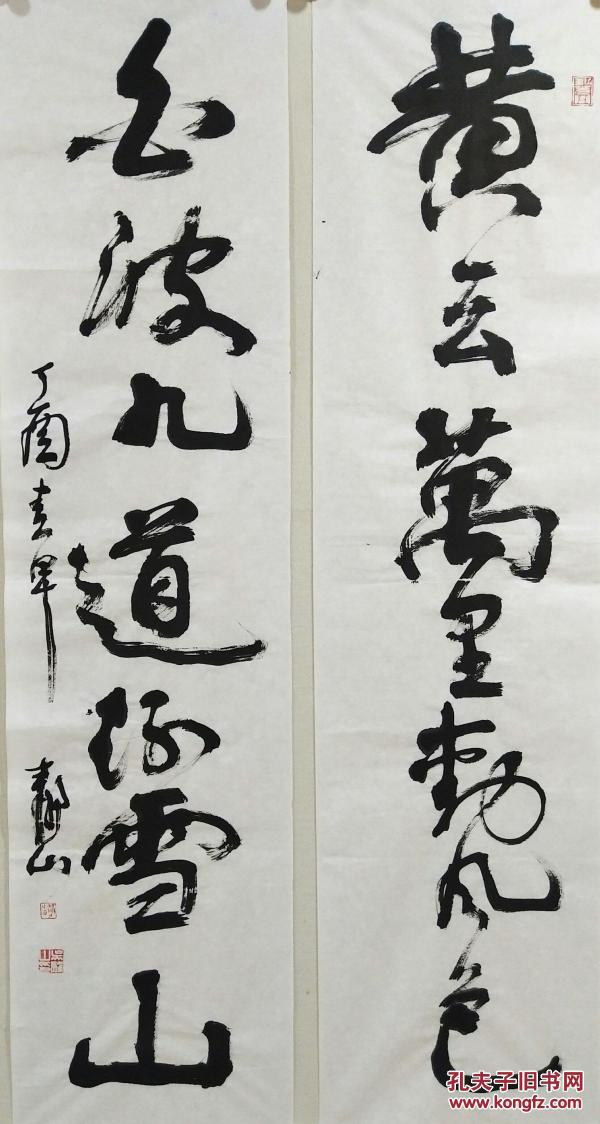 黄云萬里動风色
白波九道流雪山
丁酉春早
静山
孔夫子旧书网
www.kongfz.com